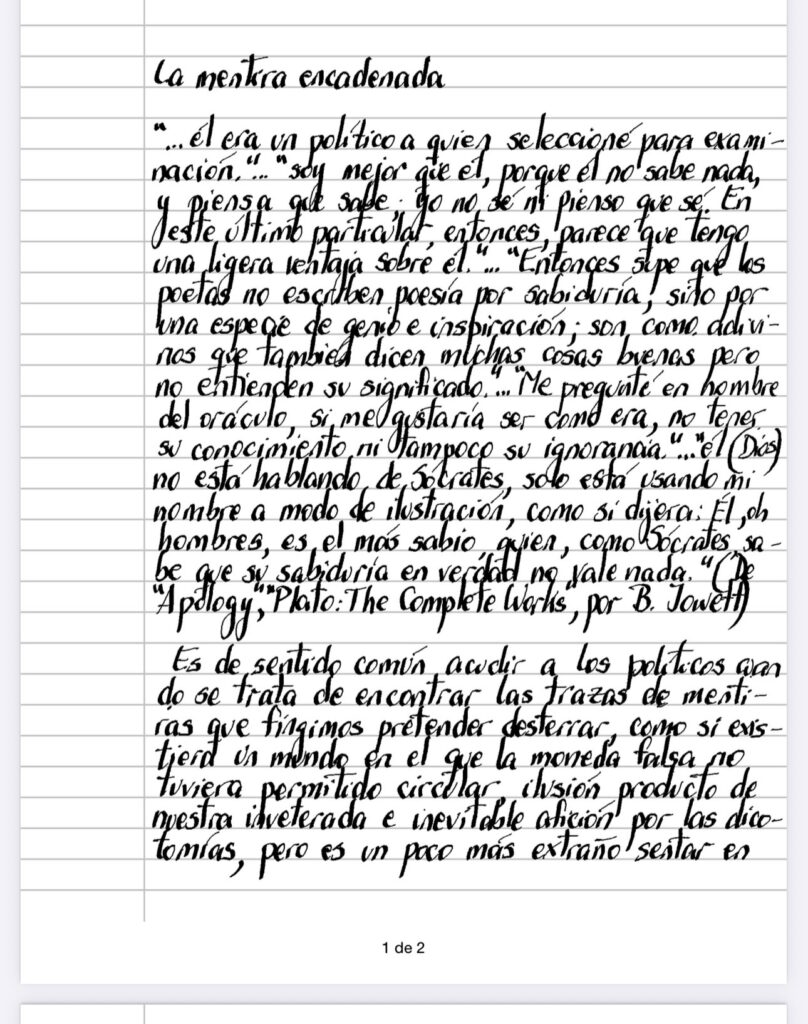 La mentira encadenada
"...él era un político a quien seleccioné para exami-
nación."..."soy mejor que él, porque él no sabe nada,
y piensa que sabe; yo no sé ni pienso que sé. En
este último particular, entonces, parece que tengo
una ligera ventaja sobre él."..."Entonces supe que los
poetas no escriben poesía por sabiduría, sino por
una especie de genio e inspiración; son como adivi-
nos que también dicen muchas cosas buenas pero
no entienden su significado."..."Me pregunté en nombre
del oráculo, si me gustaría ser como era, no tener
su conocimiento ni tampoco su ignorancia."..."él (Dios)
no está hablando de Sócrates, solo está usando mi
nombre a modo de ilustración, como si dijera: Él, oh
hombres, es el más sabio, quien, como Sócrates, sa-
be que su sabiduría en verdad no vale nada." (De
"Apology", "Plato: The Complete Works", por B. Jowett)
Es de sentido común acudir a los políticos cuan
do se trata de encontrar las trazas de menti-
ras que fingimos pretender desterrar, como si exis-
tiera un mundo en el que la moneda falsa no
tuviera permitido circular, ilusión producto de
nuestra inveterada e inevitable afición por las dico-
tomías, pero es un poco más extraño sentar en
1 de 2